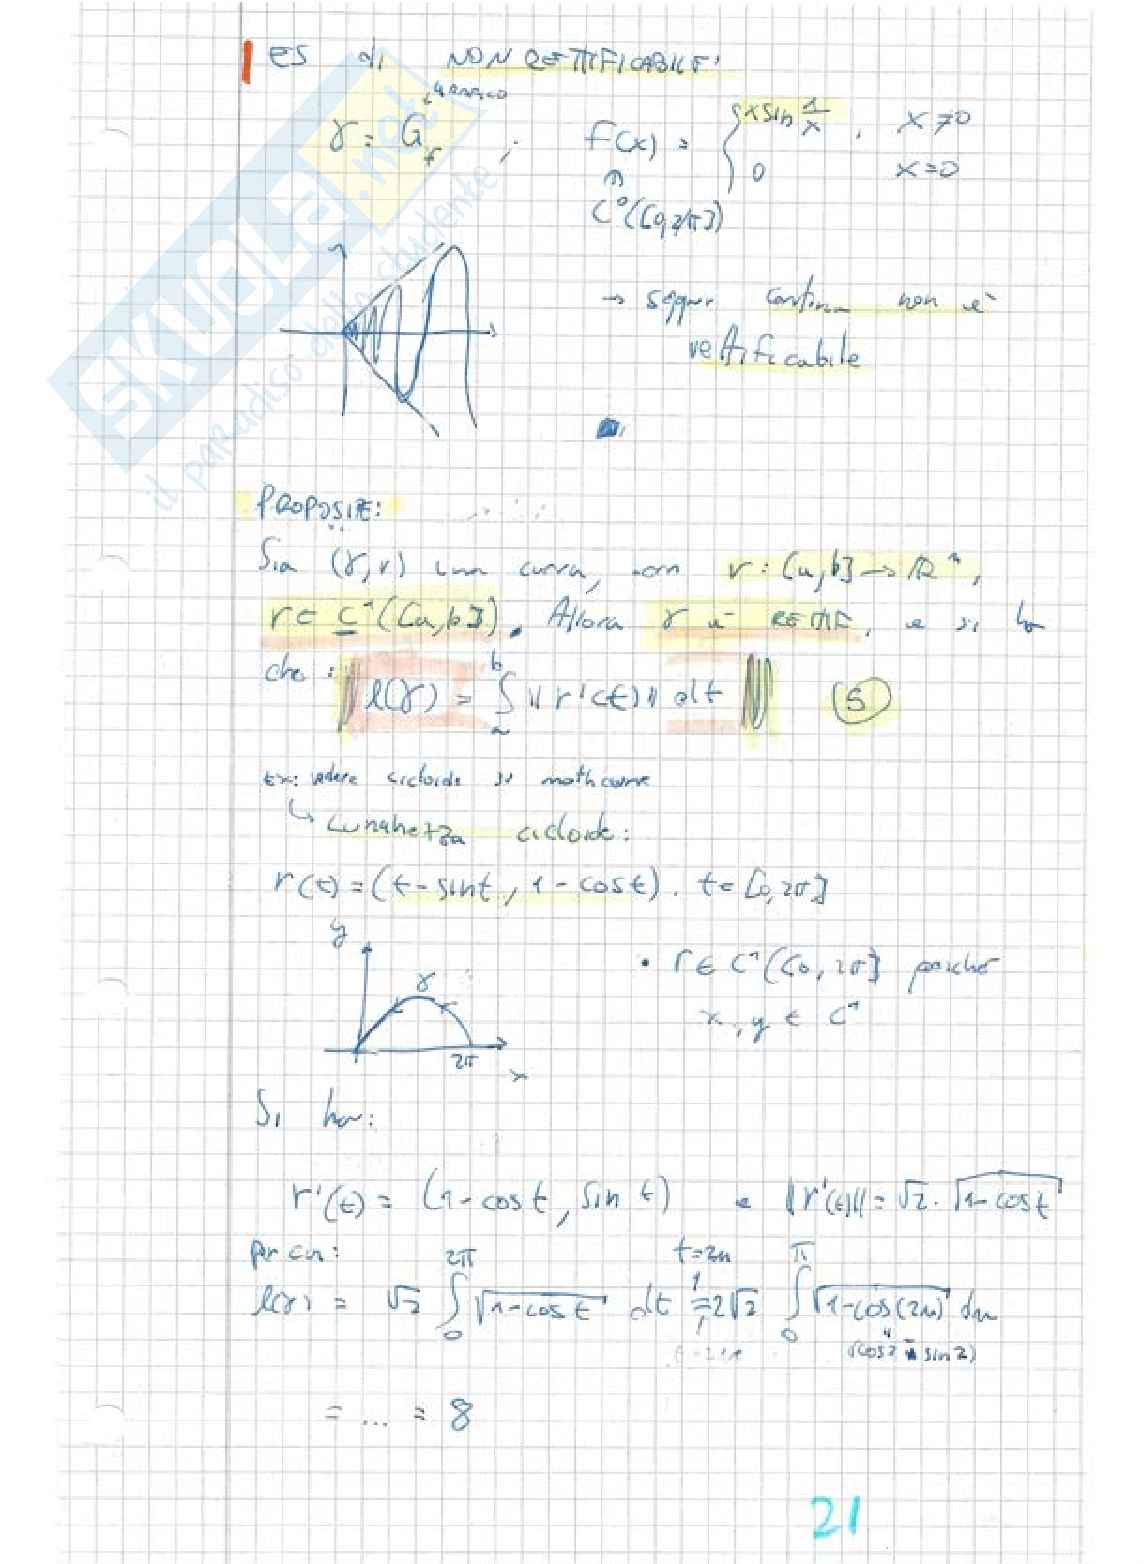 es di NON RETTIFICABILE:
GRAFICO
γ = G_f ; f(x) = { x sin 1/x , x ≠ 0
0 x = 0
↑
C⁰([0,2/π])
→ seppur continua non è
rettificabile
SKUOLA.net
il paradiso dello studente
PROPOSIZ:
Sia (γ, r) una curva, con r : [a,b] → R^n,
r ∈ C¹([a,b]). Allora γ è RETTIF, e si ha
che : l(γ) = ∫_a^b ‖r'(t)‖ dt (5)
Ex: vedere cicloide su mathcurve
↳ Lunghezza cicloide:
r(t) = (t - sin t, 1 - cos t). t = [0, 2π]
y
γ
2π
x
• r ∈ C¹([0, 2π] poiché
x, y ∈ C¹
Si ha:
r'(t) = (1 - cos t, sin t) e ‖r'(t)‖ = √2 · √1 - cos t
per cui: t = 2u
l(γ) = √2 ∫_0^2π √1 - cos t dt = 2√2 ∫_0^π √1 - cos(2u) du
= ... = 8
21